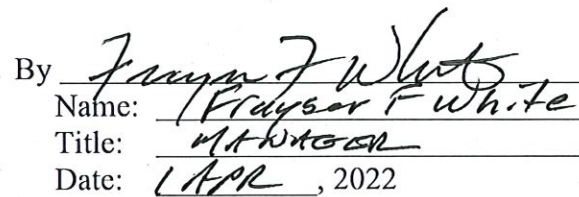 By Frayser F White
Name: Frayser F White
Title: MANAGER
Date: 1 APR, 2022